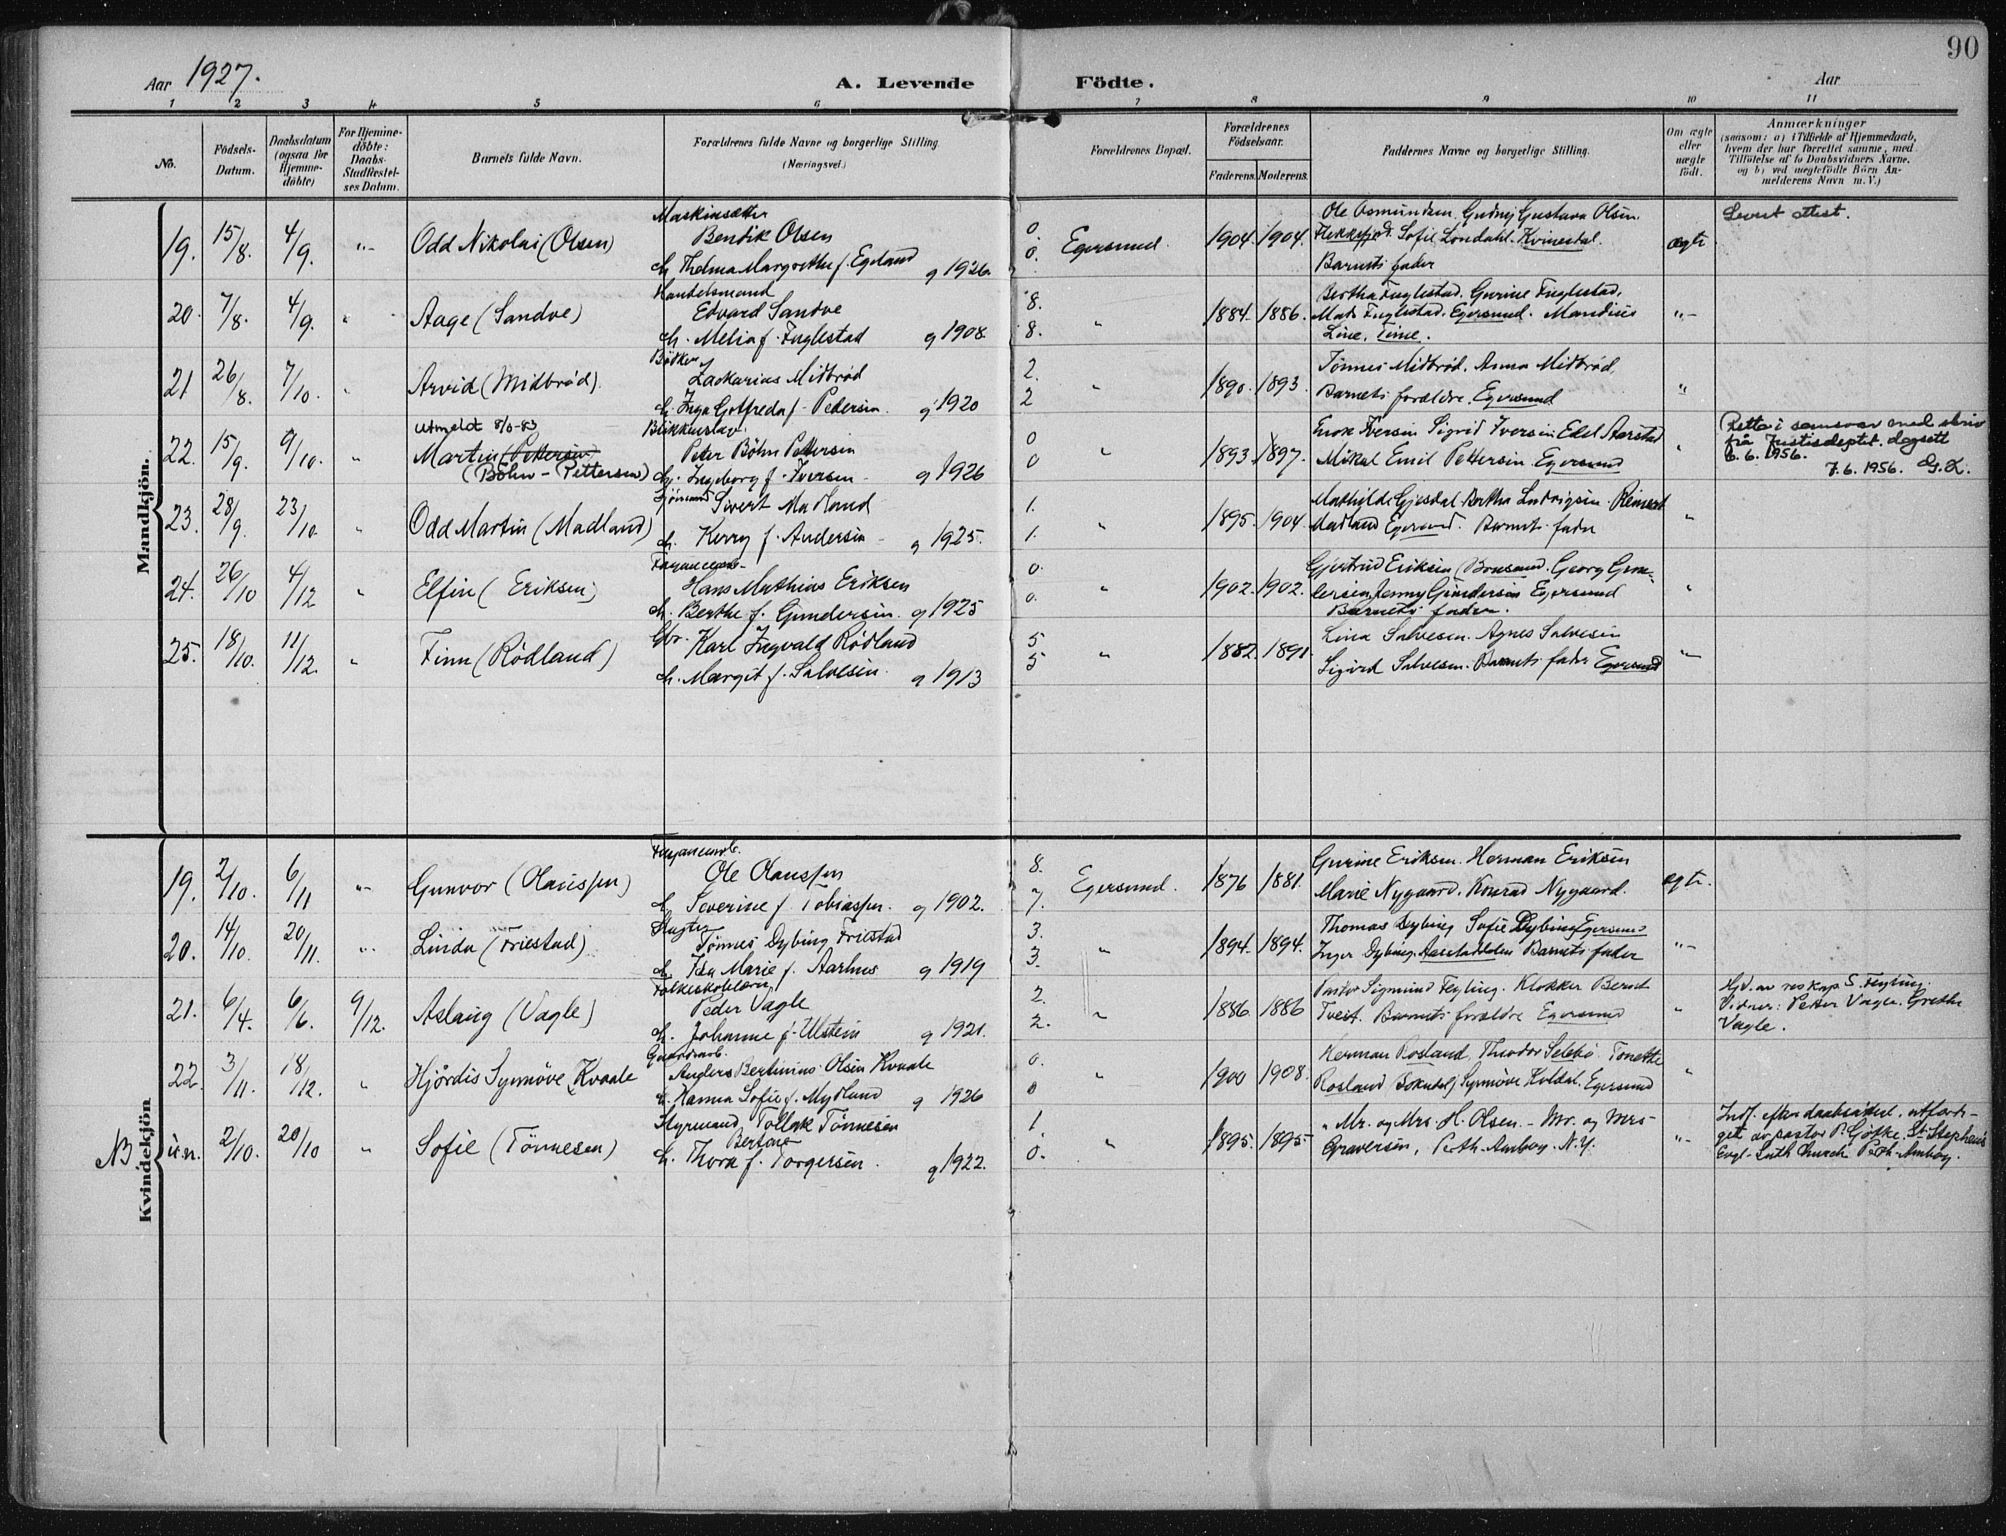 90
Aar 1927.
A. Levende Födte.
Aar
1 2 3 4 5 6 7 8 9 10 11
No.
Födsels-Datum.
Daabsdatum (ogsaa for Hjemme-döbte)
For Hjemme-döbte: Daabs-Stadfæstel-ses Datum.
Barnets fulde Navn.
Forældrenes fulde Navne og borgerlige Stilling (Næringsvei.)
Forældrenes Bopæl.
Forældrenes Födselsaar.
Faderens. Moderens.
Faddernes Navne og borgerlige Stilling.
Om ægte eller uægte födt.
Anmærkninger
(saasom: a) i Tilfælde af Hjemmedaab, hvem der har forrettet samme, med Tilföielse af to Daabsvidners Navne, og b) ved uægtefödte Börn An-melderens Navn m. V.)
Mandkjön.
19. 15/8. 4/9. "- Odd Nikolai (Olsen)
Bendik Olsen
Thelma Margrethe f. Egeland g 1926.
0. 0. Egersund. 1904. 1904.
Ole Osmundsen, Gudny Gustava Olsen
Sofie Londahl. Kvinesdal.
Barnets fader
ægte
Levert attest.
20. 7/8. 4/9. " Aage (Sandve)
Handelsmand
Edvard Sandve
Melia f. Fuglestad g 1908
8. 8. " 1884. 1886.
Bertha Fuglestad, Gurine Fuglestad,
Mads Fuglestad, Egersund. Mandius
Line, Time.
"-
21 26/8. 7/10. " Arvid (Midbrød).
Bødker
Zakarias Midbrød
Inga Gotfreda f. Pedersen. g 1920
2. 2 " 1890. 1893.
Tønnes Midbrød, Anna Midbrød,
Barnets forældre. Egersund
"
22. 15/9. 9/10. " Martin (Pettersen)
(Bøhn - Pettersen)
Utmeldt
Peter Bøhn Pettersen
Ingeborg f. Iversen g 1926
0 0 1893. 1897.
Iversen Sigrid Iversen Edel Aarstad
Mikal Emil Pettersen Egersund
"
Retta i samsvar med skriv
frå Justisdeptet. dagsett
6. 6. 1956.
7. 6. 1956.
23. 28/9. 23/10. " Odd Martin (Madland)
Sjömand Sivert Madland
Kerry f. Andersen g 1925.
1. 1. " 1895. 1904.
Mathilde Gjesdal Bertha Ludvigsen. Reinert
Madland Egersund. Barnets fader
"
24. 26/10 4/12 " Elfin (Eriksen)
Hans Mathias Eriksen
Berthe f. Gundersen. g 1925
0. 0. " 1902. 1902.
Gjertrud Eriksen Georg Gun-
dersen Jenny Gundersen Egersund
Barnets fader.
"
25. 18/10. 11/12. " Finn (Rødland)
Karl Ingvald Rødland
Margit f. Salvesen. g 1913
5 5 " 1882. 1891.
Lina Salvesen. Agnes Salvesen
Sigurd Salvesen. Barnets fader Egersund
"-
Kvindekjön
19. 2/10. 6/11 "- Gunvor (Olaussen)
Ole Olaussen
Severine f. Tobiassen. g 1902.
8. 7. Egersund. 1876 1881.
Gurine Eriksen. Herman Eriksen
Marie Nygaard. Konrad Nygaard.
ægte.
20. 14/10. 20/11. "- Linda (Friestad)
Slagter
Tønnes Dybing Friestad
Isa Marie f. Aarhus g 1919
3. 3. " 1894. 1894.
Thomas Dybing Sofie Dybing Egersund
Inger Dybing, Barnets fader
"-
21. 6/4. 6/6. 9/12. Aslaug (Vagle)
Folkeskolelærer
Peder Vagle
Johanne f. Ulstein g 1921.
2. 2. " 1886. 1886
Pastor Sigmund Feyling. Klokker Berent
Tveit. Barnets forældre Egersund
"
Hjd. av res kap. S. Feyling.
Vidner: Petter Vagle. Grethe
Vagle.
22. 3/11. 18/12. " Hjørdis Synnøve Kvaale
Anders Bertinius Olsen Kvaale
Hanna Sofie f. Mydland g 1926
0. 0 " 1900 1908.
Herman Rosland, Theodor Selebø Tonette
Rosland Sokndal, Synnøve Egersund
"
NB u.n. 2/10. 20/10 " Sofie (Tönnesen)
Styrmand Tollak Tönnesen
Thora f. Torgersen. g 1922.
1 0. " 1895. 1895
Mr. og Mrs. H. Olsen. - Mr. og Mrs
Graversen, Perth-Amboy. N.Y.
"-
Indf. efter daabsattest, utfærdi-
get av pastor P. St. Stephens
Evgl-Luth Church Perth-Amboy.